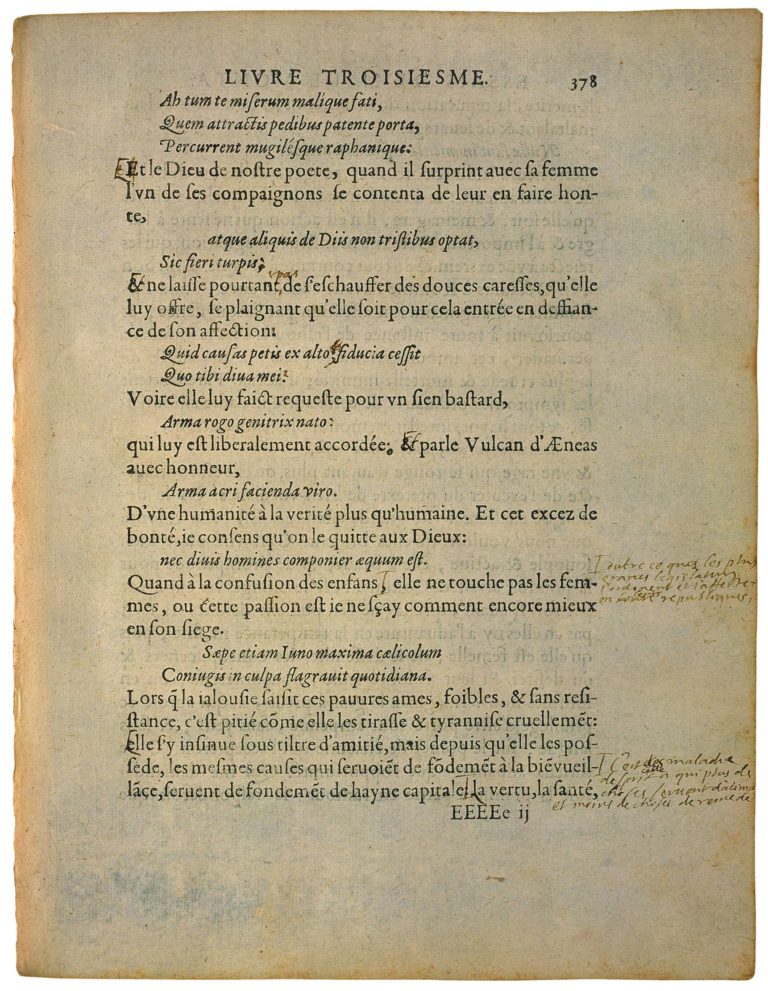 LIVRE TROISIESME. 378
Ah tum te miſerum malique fati,
Quem attractis pedibus patente porta,
Percurrent mugiléſque raphanique:
Et le Dieu de noſtre poete, quand il ſurprint auec ſa femme
l'vn de ſes compaignons ſe contenta de leur en faire hon-
te,
atque aliquis de Diis non triſtibus optat,
Sic fieri turpis;
& ne laiſſe pourtant pas de s'eſchauffer des douces careſſes, qu'elle
luy offre, ſe plaignant qu'elle ſoit pour cela entrée en deffian-
ce de ſon affection:
Quid cauſas petis ex alto, fiducia ceſſit
Quo tibi diua mei?
Voire elle luy faict requeſte pour vn ſien baſtard,
Arma rogo genitrix nato:
qui luy eſt liberalement accordée. Et parle Vulcan d'Æneas
auec honneur,
Arma acri facienda viro.
D'vne humanité à la verité plus qu'humaine. Et cet excez de
bonté, ie conſens qu'on le quitte aux Dieux:
nec diuis homines componier æquum eſt.
Quand à la confuſion des enfans, elle ne touche pas les fem-
outre ce que les plus
graues legislaturs
l'ordonent et l'affectent
en leurs republiques,
mes, ou cette paſſion eſt ie ne ſçay comment encore mieux
en ſon ſiege.
Sæpe etiam Iuno maxima cælicolum
Coniugis in culpa flagrauit quotidiana.
Lors q̃ la ialouſie ſaiſit ces pauures ames, foibles, & ſans reſi-
ſtance, c'eſt pitié cõme elle les tiraſſe & tyranniſe cruellemẽt:
Elle s'y inſinue ſous tiltre d'amitié, mais depuis qu'elle les poſ-
ſede, les meſmes cauſes qui ſeruoiẽt de fõdemẽt à la biẽvueil-
lãce, ſeruent de fondemẽt de hayne capitale. La vertu, la ſanté,
C'est des maladies
d'esprit a qui plus de
choses seruent d'aliment
et moins de choses de remede
EEEEe ij